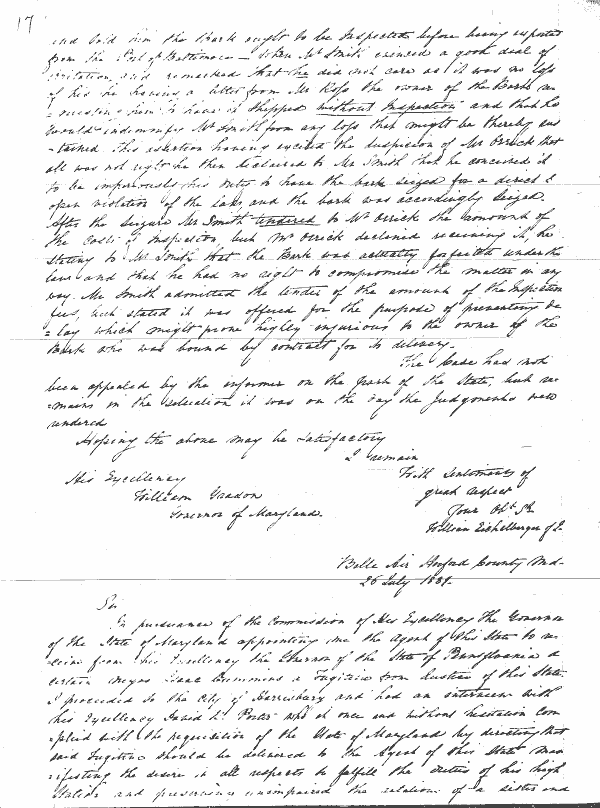 17
and told him the Bark ought to be Inspected before being exported
from the Port of Baltimore — when Mr Smith evinced a good deal of
irritation, and remarked that he did not care as it was no loss
of his he having a letter from Mr Ross the owner of the Bark re
=questing him to have it shipped without Inspection and that he
would indemnify Mr Smith from any loss that might be thereby sus
=tained. This assertion having excited the suspicion of Mr Orrick that
all was not right he then declared to Mr Smith that he conceived it
to be imperiously his duty to have the bark seized for a direct &
open violation of the Law, and the bark was accordingly seized.
After the seizure Mr Smith tendered to Mr Orrick the amount of
the costs of Inspection, but Mr Orrick declined receiving it, he
stating to Mr Smith that the Bark was actually forfeited under the
law and that he had no right to compromise the matter in any
way. Mr Smith admitted the tender of the amount of the Inspection
fees, but stated it was offered for the purpose of preventing de
=lay which might prove highly injurious to the owner of the
Bark who was bound by contract for its delivery.
The Case had not
been appealed by the informer on the part of the State, but re
=mains in the situation it was on the day the Judgements were
rendered
Hoping the above may be satisfactory
I remain
His Excellency
With Sentiments of
William Grason
great respect
Governor of Maryland.
Your Obt St
William Eichelberger of J.
Belle Air Harford County Md-
26 July 1839.
Sir
In pursuance of the Commission of His Excellency The Governor
of the State of Maryland appointing me the Agent of this State to re
=ceive from his Excellency the Governor of the State of Pennsylvania a
certain negro Isaac Cummins a Fugitive from Justice of this State
I proceeded to the City of Harrisburg and had an interview with
his Excellency David R. Porter who at once and without hesitation com
=plied with the requisition of the State of Maryland by directing that
said Fugitive should be delivered to the Agent of this State man
=ifesting the desire in all respects to fulfill the duties of his high
Station and preserving unimpaired the relations of a sister and